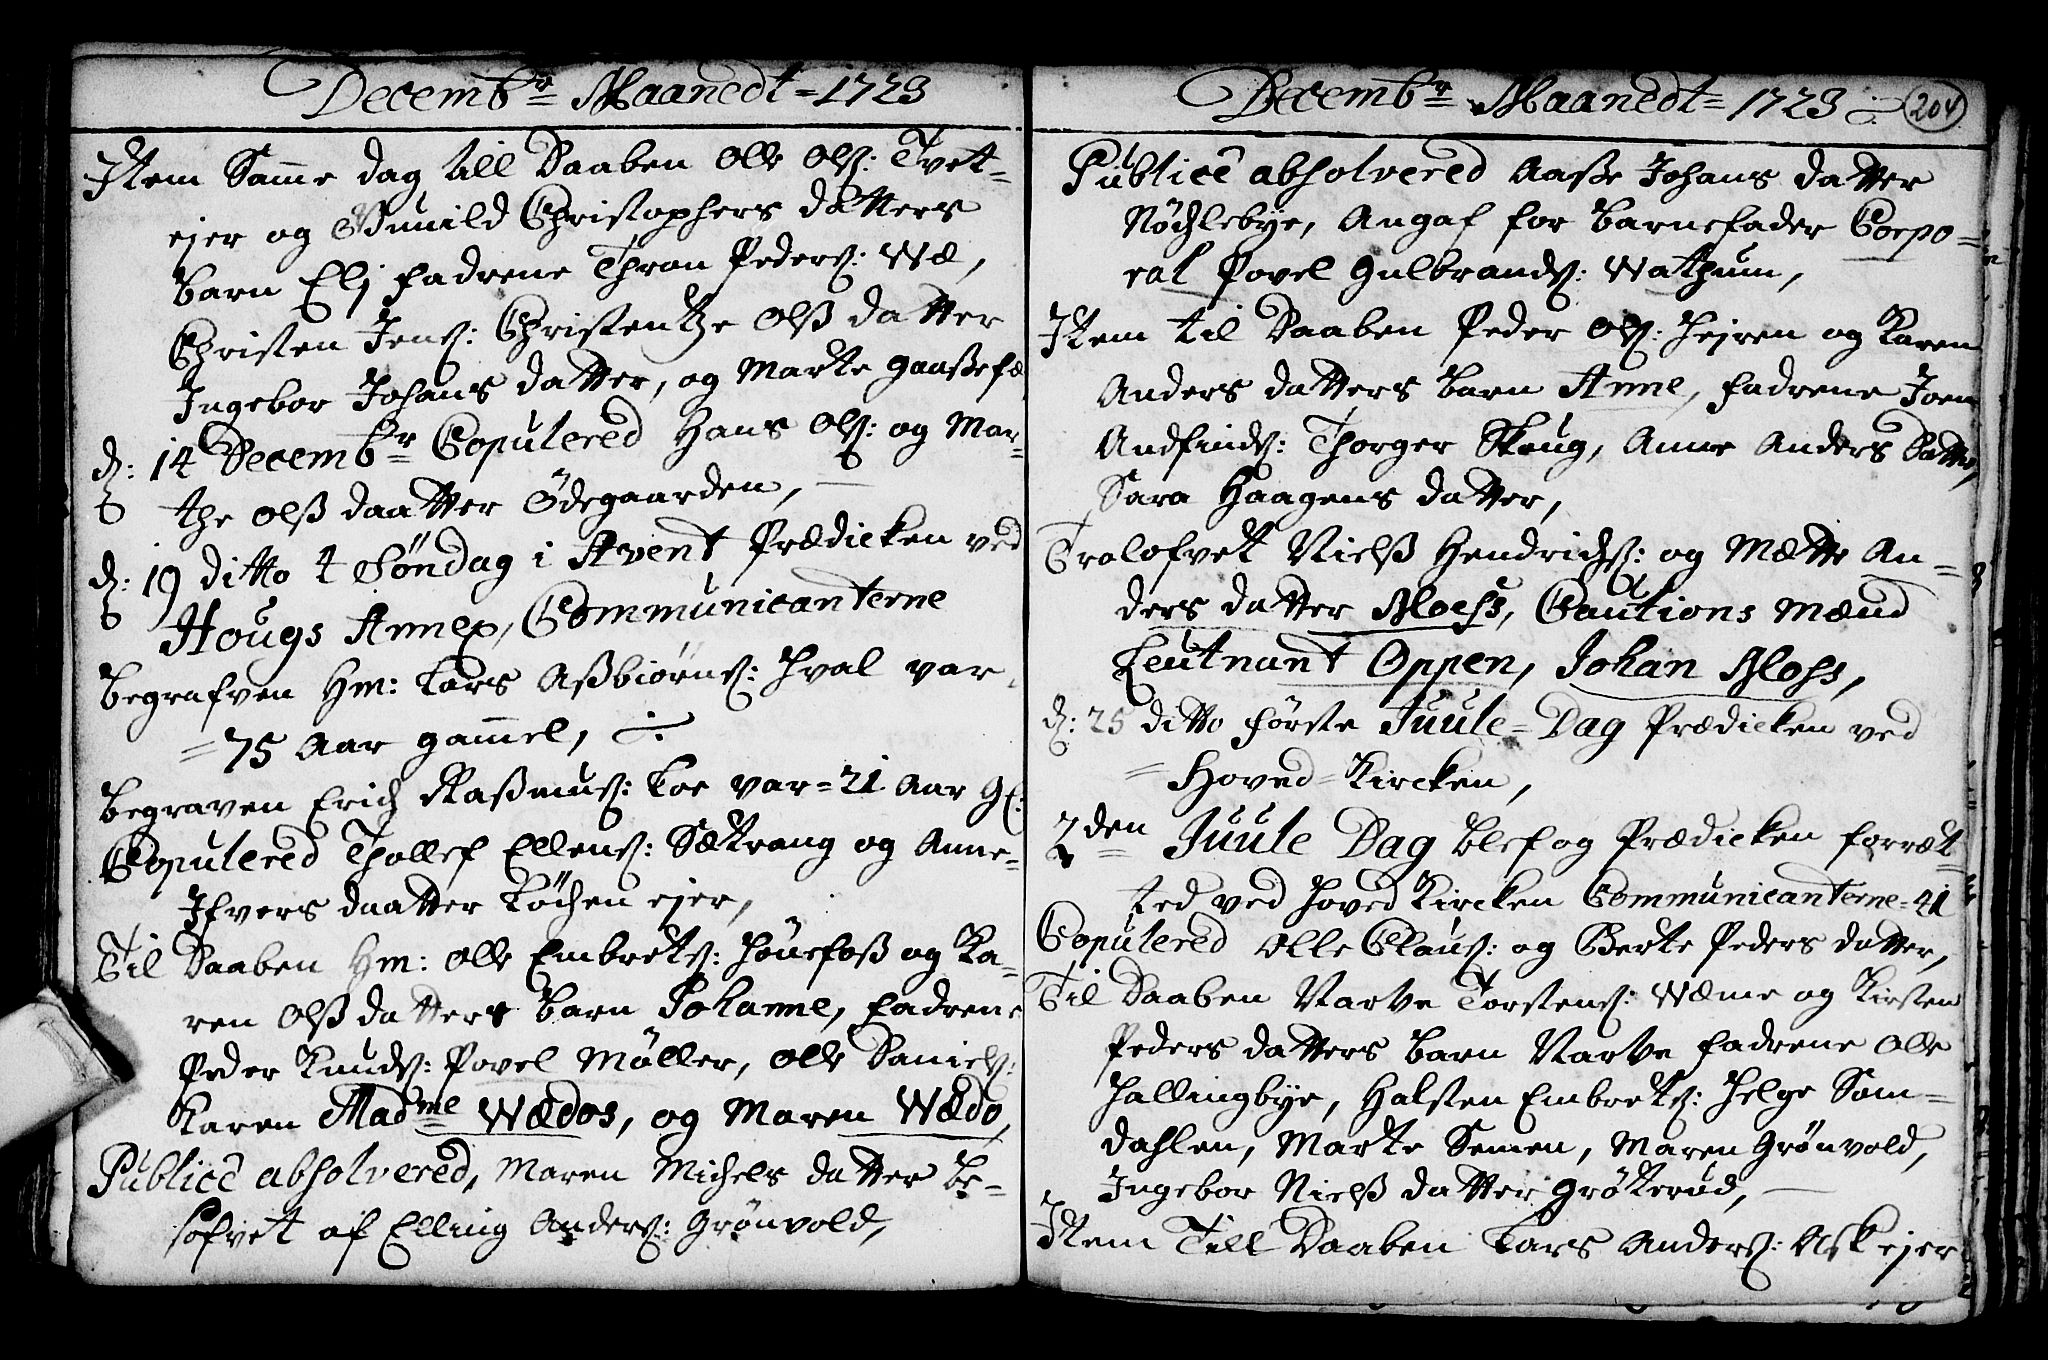 Decembr Maanedt = 1723
Item Samme dag till Daaben Olle Ols: Tvet=
ejer og Gunild Christophers datters
barn Elj fadrene Thron Peders: Wæ,
Christen Jens: Christentze Olß datter
Ingebor Johans datter, og Marte Gaaßefæ
d: 14 Decembr Copulered Hans Ols: og Mar=
the Olß daatter Ødegaarden,
d: 19 ditto 4 Søndag i Avent Prædicken ved
Hougs Annex, Communicanterne
begrafven Hm: Lars Aßbiørns: Hval var
= 75 Aar gammel,
begraven Erich Raßmus: Loe var = 21 Aar gl:
Copulered Thollef Ellens: Sætrang og Anne=
Ifvers daatter Køchen ejer,
Til Daaben Hm: Olle Embrets: Hönefoß og Ka=
ren Olß datters barn Johanne, fadrene
Peder Knuds: Povel Møller, Olle Daniels:
Karen Madme Wædos, og Maren Wædo,
Publicè absolvered, Maren Michels datter be=
sofvet af Elling Anders: Grønvold,
Decembr Maanedt = 1723 204
Publicè absolvered Aaße Johans datter
Nøchlebye, Angaf for barnefader Corpo=
ral Povel Gulbrands: Wathum,
Item til Daaben Peder Ols: Hejren og Karen
Anders datters barn Anne, fadrene Joen
Andfinds: Thorger Skeug, Anne Anders datter,
Sara Haagens datter,
Trolofvet Nielß Hendrichs: og Mætte An=
ders datter Bloss, Cautions Mænd
Leutnant Oppen, Johan Bloss,
d: 25 ditto første Juule = Dag Prædicken ved
= Hoved = Kircken,
2den Juule Dag blef og Prædicken forræt
ted ved Hoved Kircken Communicanterne = 21
Copulered Olle Claus: og Berte Peders datter,
Til Daaben Narve Torstens: Wæme og Kirsten
Peders datters barn Narve fadrene Olle
Hallingbye, Halsten Embrets: Helge Som=
dahlen, Marte Semen, Maren Grønvold,
Ingebor Nielß datter Grøterud,
Item Till Daaben Lars Anders: Askejer